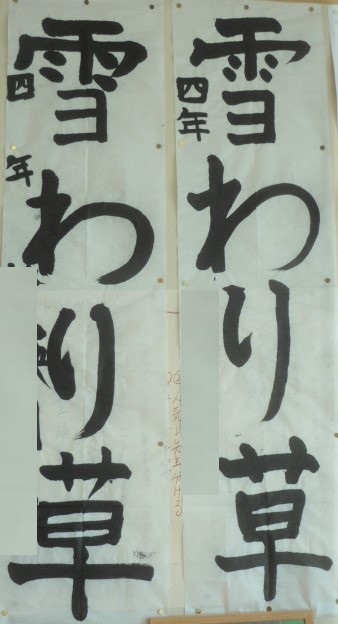 雪わり草
四年
雪わり草
四年